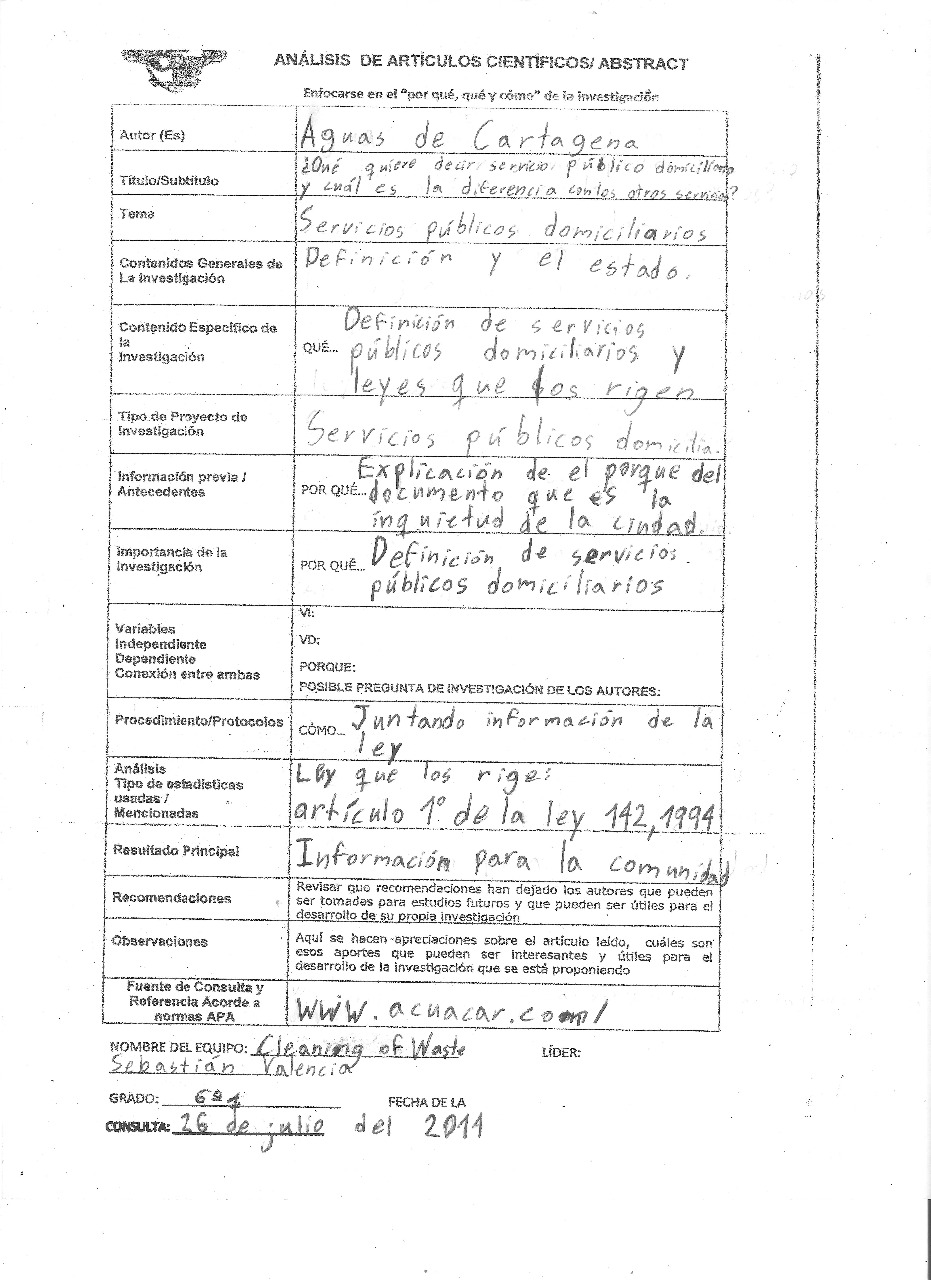 ANÁLISIS DE ARTÍCULOS CIENTÍFICOS/ ABSTRACT
Enfocarse en el "por qué, qué y cómo" de la investigación
Autor (Es)
Aguas de Cartagena
Título/Subtítulo
¿Qué quiere decir servicio público domiciliario
y cuál es la diferencia con los otros servicios?
Tema
Servicios públicos domiciliarios
Contenidos Generales de
La Investigación
Definición y el estado.
Contenido Específico de
la
Investigación
QUÉ...
Definición de servicios
públicos domiciliarios y
leyes que los rigen
Tipo de Proyecto de
Investigación
Servicios públicos domicilia.
Información previa /
Antecedentes
POR QUÉ...
Explicación de el porque del
documento que es la
inquietud de la ciudad.
Importancia de la
Investigación
POR QUÉ...
Definición de servicios
públicos domiciliarios
Variables
Independiente
Dependiente
Conexión entre ambas
VI:
VD:
PORQUE:
POSIBLE PREGUNTA DE INVESTIGACIÓN DE LOS AUTORES:
Procedimiento/Protocolos
CÓMO...
Juntando información de la
ley
Análisis
Tipo de estadísticas
usadas /
Mencionadas
Ley que los rige:
artículo 1º de la ley 142, 1994
Resultado Principal
Información para la comunidad
Recomendaciones
Revisar que recomendaciones han dejado los autores que pueden
ser tomadas para estudios futuros y que pueden ser útiles para el
desarrollo de su propia investigación
Observaciones
Aquí se hacen apreciaciones sobre el artículo leído, cuáles son
esos aportes que pueden ser interesantes y útiles para el
desarrollo de la investigación que se está proponiendo
Fuente de Consulta y
Referencia Acorde a
normas APA
www.acuacar.com/
NOMBRE DEL EQUIPO: Cleaning of Waste LÍDER:
Sebastián Valencia
GRADO: 6º1 FECHA DE LA
CONSULTA: 26 de julio del 2011